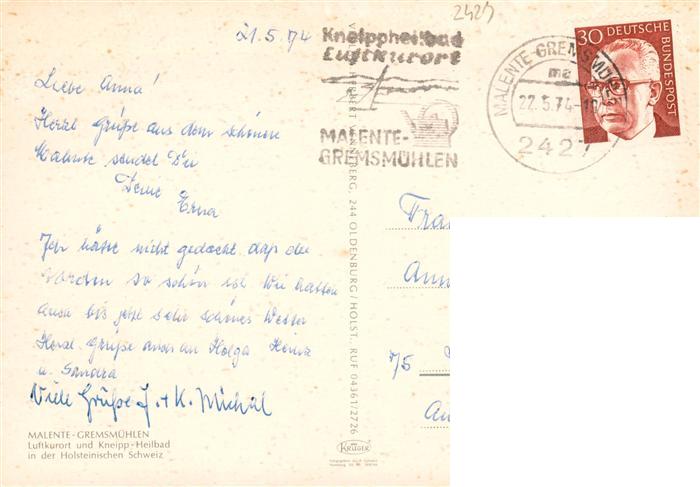 2427
21.5.74
Kneippheilbad
Luftkurort
MALENTE-
GREMSMÜHLEN
MALENTE-GREMSMÜHLEN
22.5.74-10
2427
30 DEUTSCHE
BUNDESPOST
Liebe Anna!
Herzl Grüße aus dem schönen
Malente sendet Dir
Deine
Erna
Ich hätte nicht gedacht daß der
Norden so schön ist Wir hatten
auch bis jetzt sehr schönes Wetter
Herzl. Grüße auch an Helga Heinz
u. Sandra
Viele Grüße J. + K. Michal
Frau
Ann
75
An
244 OLDENBURG/HOLST., RUF 04361/2726
MALENTE-GREMSMÜHLEN
Luftkurort und Kneipp-Heilbad
in der Holsteinischen Schweiz
KRÜGER